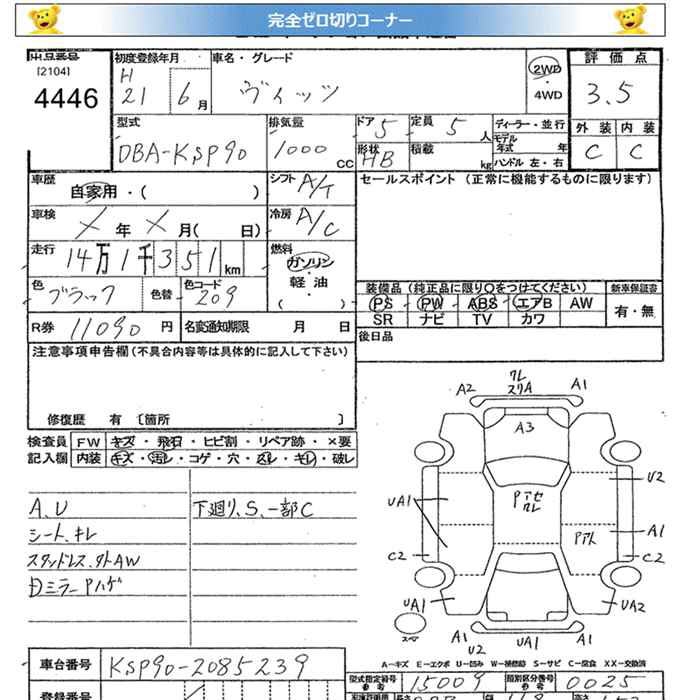 完全ゼロ切りコーナー
出品番号
[2104]
4446
初度登録年月
H
21 6月
車名・グレード
ヴィッツ
2WD
・
4WD
評価点
3.5
外装 内装
C C
型式
DBA-KSP90
排気量
1000 cc
ドア 5
形状 HB
定員 5 人
積載 kg
ディーラー・並行
モデル年式 年
ハンドル 左・右
車歴 自家用・( )
シフト A/T
セールスポイント (正常に機能するものに限ります)
車検 X年 X月( 日)
冷房 A/C
走行 14万1千351km
燃料
ガソリン
・
軽油
・
( )
色 ブラック 色替 色コード 209
装備品 (純正品に限り○をつけてください) 新車保証書
PS PW ABS エアB AW 有・無
SR ナビ TV カワ
R券 11090 円 名変通知期限 月 日
後日品
注意事項申告欄 (不具合内容等は具体的に記入して下さい)
修復歴 有 〔箇所 〕
検査員 FW キズ・飛石・ヒビ割・リペア跡・×要
記入欄 内装 キズ・汚レ・コゲ・穴・スレ・キレ・破レ
A、U
シート、キレ
スタッドレス、外AW
Dミラー Pハゲ
下廻り、S、一部C
A2 クレ スリA A1
A3
U2
UA1
Pアセ
クレ
Pアト
A1
C2 C2
UA1 UA2
スペ
A1 U2 UA1 A1
A-キズ E-エクボ U-凹み W-補修跡 S-サビ C-腐食 XX-交換済
車台番号 KSP90-2085239
型式指定番号 参考 15009 類別区分番号 参考 0025